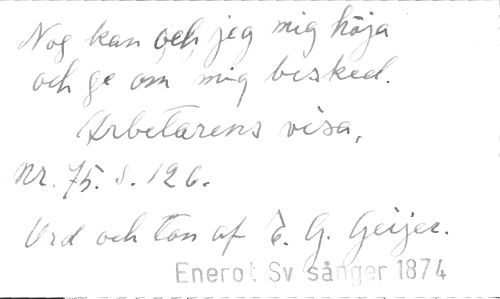 Nog kan och jeg mig höja
och ge om mig besked.
Arbetarens visa,
Nr. 75. S. 126.
Ord och ton af E. G. Geijer.
Enerot Sv sånger 1874